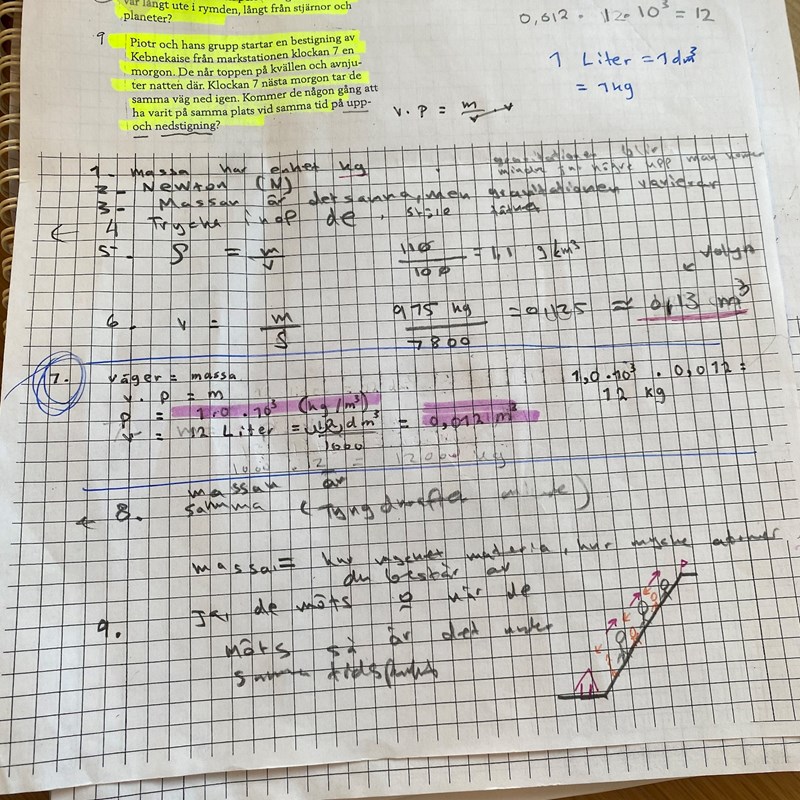 var långt ute i rymden, långt från stjärnor och
planeter?
0,012 · 1,0·10³ = 12
9 Piotr och hans grupp startar en bestigning av
Kebnekaise från markstationen klockan 7 en
morgon. De når toppen på kvällen och avnju-
ter natten där. Klockan 7 nästa morgon tar de
samma väg ned igen. Kommer de någon gång att
ha varit på samma plats vid samma tid på upp-
och nedstigning?
1 Liter = 1 dm³
= 1 kg
v · p = m/v · v
1- massa har enhet kg
gravitationen blir
mindre ju högre upp man kommer
2- Newton (N)
3- Massan är det samma, men gravitationen varierar
← 4 Trycks ihop de,
5- ρ = m/v 110/100 = 1,1 g/cm³
volym
6- v = m/ρ 975 kg/7800 = 0,125 ≈ 0,13 m³
7. väger = massa
v · p = m
p = 1,0 · 10³ (kg/m³)
v = 12 Liter = 12 dm³/1000 = 0,012 m³
1,0·10³ · 0,012 =
12 kg
= 12000 kg
← 8. massan är
samma (Tyngdkraften mindre)
massa = hur mycket materia, hur mycke atomer
du består av
9. Ja, de möts när de
möts så är det under
samma tidspunkt